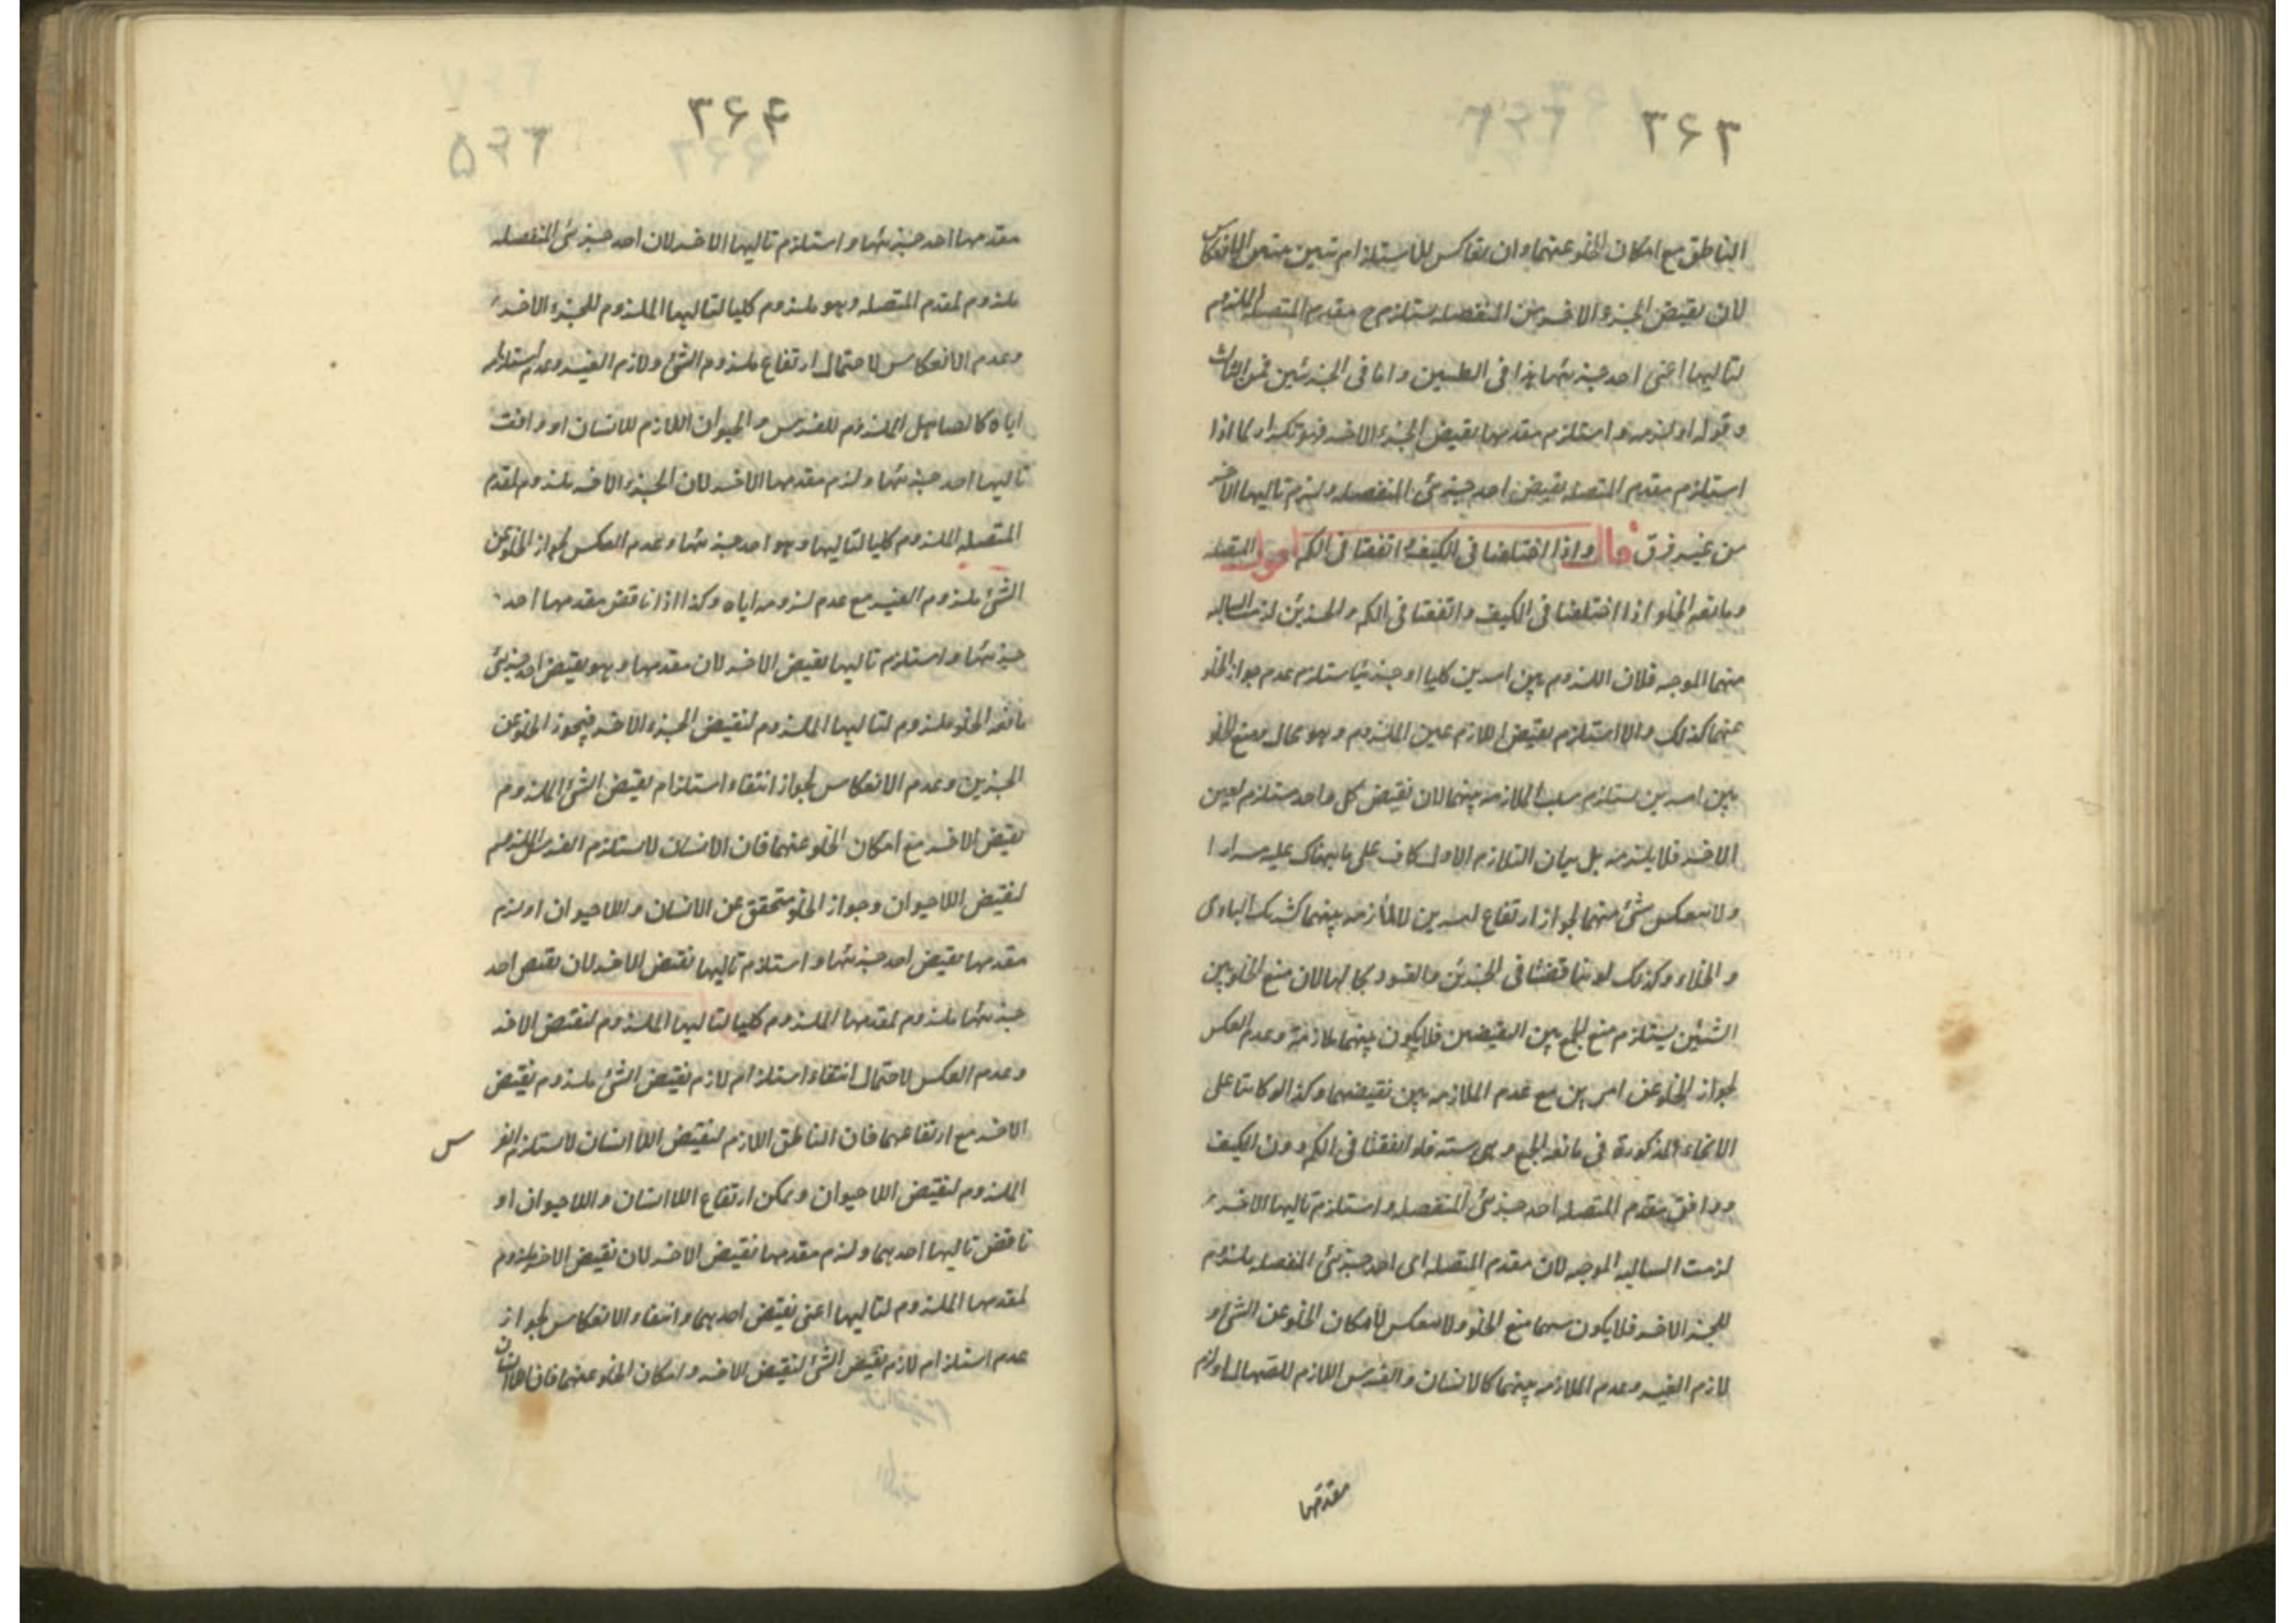 ٣۶٣
الناطق مع امكان الخلو عنهما وان تعاكس للاستلزام تبين الانعكاس
لان نقيض الجزء الاخر من المنفصله يستلزم ح مقدم المتصله الملزوم
لتاليها اعنى احد جزئيها هذا فى الكليتين واما فى الجزئيتين فمن الثالث
وقوله او لزمه واستلزم مقدمها نقيض الجزء الاخر فهو تكرار لما اذا
استلزم مقدم المتصله نقيض احد جزئى المنفصله ولزم تاليها الاخر
من غير فرق قال واذا اختلفتا فى الكيف واتفقتا فى الكم اقول المتصله
ومانعه الخلو اذا اختلفتا فى الكيف واتفقتا فى الكم والجزئين لزمت السالبه
منهما الموجبه فلان اللزوم بين امرين كليا او جزئيا يستلزم عدم جواز الخلو
عنهما كذلك والا استلزم نقيض اللازم عين الملزوم وهو محال ومنع الخلو
بين امرين يستلزم سلب الملازمه بينهما لان نقيض كل واحد مستلزم لعين
الاخر فلا يلزمه بل بيان التلازم الاول كاف على ما نبهناك عليه مرارا
ولا ينعكس شئ منهما لجواز ارتفاع امرين لا ملازمه بينهما كشريك البارى
والخلاء وكذلك لو تناقضتا فى الجزئين والقيود بحالها لان منع الخلو بين
الشيئين يستلزم منع الجمع بين النقيضين فلا يكون بينهما ملازمة وعدم العكس
لجواز الخلو عن امرين مع عدم الملازمه بين نقيضهما وكذا لو كانتا على
الانحاء المذكورة فى مانعه الجمع وهى سته فلو اتفقتا فى الكم دون الكيف
ووافق مقدم المتصله احد جزئى المنفصله واستلزم تاليها الاخر
لزمت السالبه الموجبه لان مقدم المتصله اى احد جزئى المنفصله ملزوم
للجزء الاخر فلا يكون بينهما منع الخلو ولا ينعكس لامكان الخلو عن الشئ و
لازم الغير وعدم الملازمه بينهما كالانسان والفرس اللازم للصهال او لزم
مقدمها
٣۶۴
٣۶۵
مقدمها احد جزئيها واستلزم تاليها الاخر لان احد جزئى المنفصله
ملزوم لمقدم المتصله وهو ملزوم كليا لتاليها الملزوم للجزء الاخر
وعدم الانعكاس لاحتمال ارتفاع ملزوم الشئ ولازم الغير وعدم استلزام
اياه كالصاهل الملزوم للفرس والحيوان اللازم للانسان او وافقت
تاليها احد جزئيها ولزم مقدمها الاخر لان الجزء الاخر ملزوم لمقدم
المتصله الملزوم كليا لتاليها وهو احد جزئيها وعدم العكس لجواز الخلو عن
الشئ ملزوم الغير مع عدم لزومه اياه وكذا اذا ناقض مقدمها احد
جزئيها واستلزم تاليها نقيض الاخر لان مقدمها وهو نقيض احد جزئى
مانعه الخلو ملزوم لتاليها الملزوم لنقيض الجزء الاخر فيجوز الخلو عن
الجزئين وعدم الانعكاس لجواز انتفاء استلزام نقيض الشئ الملزوم
نقيض الاخر مع امكان الخلو عنهما فان الانسان لا يستلزم الفرس الملزوم
لنقيض اللاحيوان وجواز الخلو متحقق عن الانسان واللاحيوان او لزم
مقدمها نقيض احد جزئيها واستلزم تاليها نقيض الاخر لان نقيض احد
جزئيها ملزوم لمقدمها الملزوم كليا لتاليها الملزوم لنقيض الاخر
وعدم العكس لاحتمال انتفاء استلزام لازم نقيض الشئ ملزوم نقيض
الاخر مع ارتفاعهما فان الناطق اللازم لنقيض اللاانسان لا يستلزم الفر س
الملزوم لنقيض اللاحيوان ويمكن ارتفاع اللاانسان واللاحيوان او
ناقض تاليها احدهما ولزم مقدمها نقيض الاخر لان نقيض الاخر ملزوم
لمقدمها الملزوم لتاليها اعنى نقيض احدهما وانتفاء الانعكاس لجواز
عدم استلزام لازم نقيض الشئ لنقيض الاخر وامكان الخلو عنهما فان الانسان